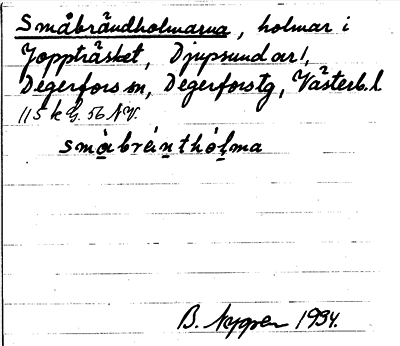 Småbrändholmarna, holmar i
Joppträsket, Djupsund ar 1,
Degerfors sn, Degerforstg, Västerb. l
115 k G. 56 NV.
småbräintholma
B. Nyper 1934.